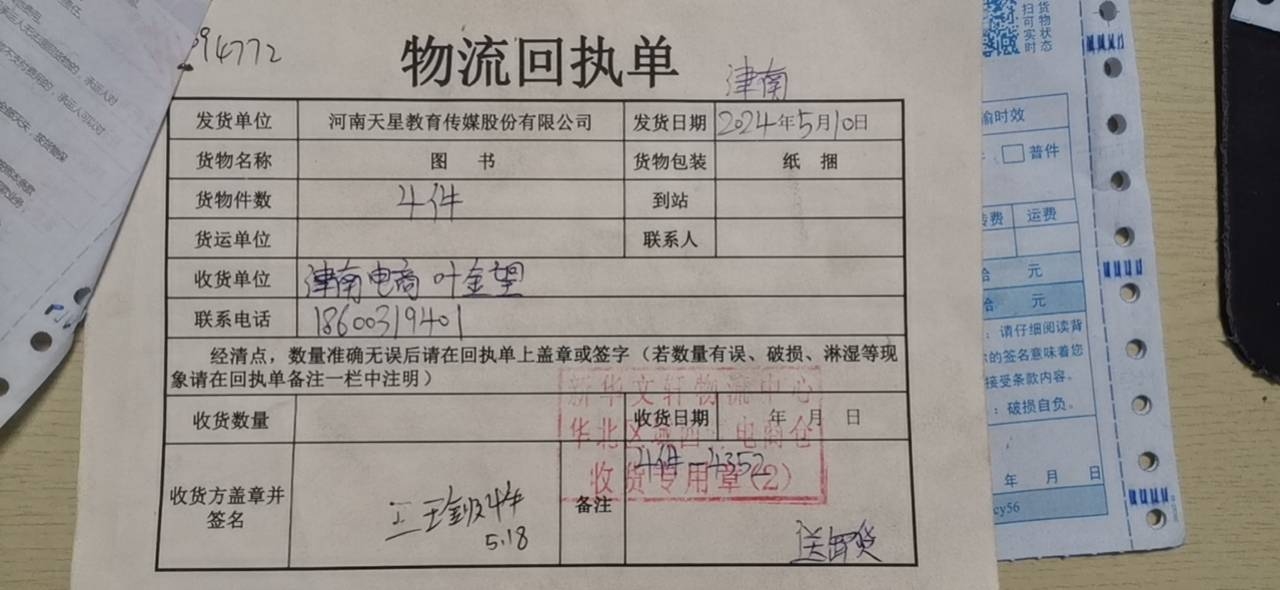 94772
物流回执单
津南
发货单位 河南天星教育传媒股份有限公司 发货日期 2024年5月10日
货物名称 图 书 货物包装 纸 捆
货物件数 4件 到站
货运单位 联系人
收货单位 津南电商 叶金望
联系电话 18600319401
经清点，数量准确无误后请在回执单上盖章或签字（若数量有误、破损、淋湿等现
象请在回执单备注一栏中注明）
收货数量 收货日期 年 月 日
新华文轩物流中心
电商仓
收货专用章(2)
4件-4352
收货方盖章并
签名
4件
5.18
备注
送卸货
货物状态
扫可实时
输时效
普件
运费
元
元
：请仔细阅读背
的签名意味着您
接受条款内容。
：破损自负。
年 月 日
cy56